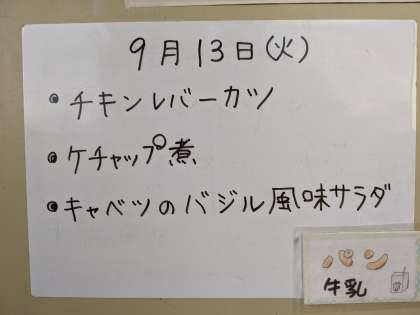 9月13日(火)
チキンレバーカツ
ケチャップ煮
キャベツのバジル風味サラダ
パン
牛乳